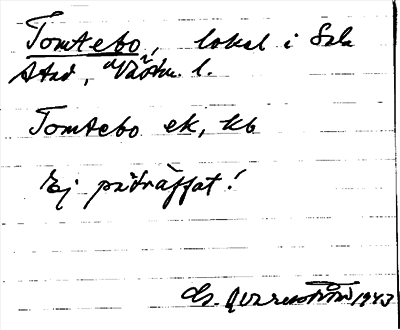 Tomtebo, lokal i Sala
stad, Västm. l.
Tomtebo ek, kb
Ej påträffat!
1943